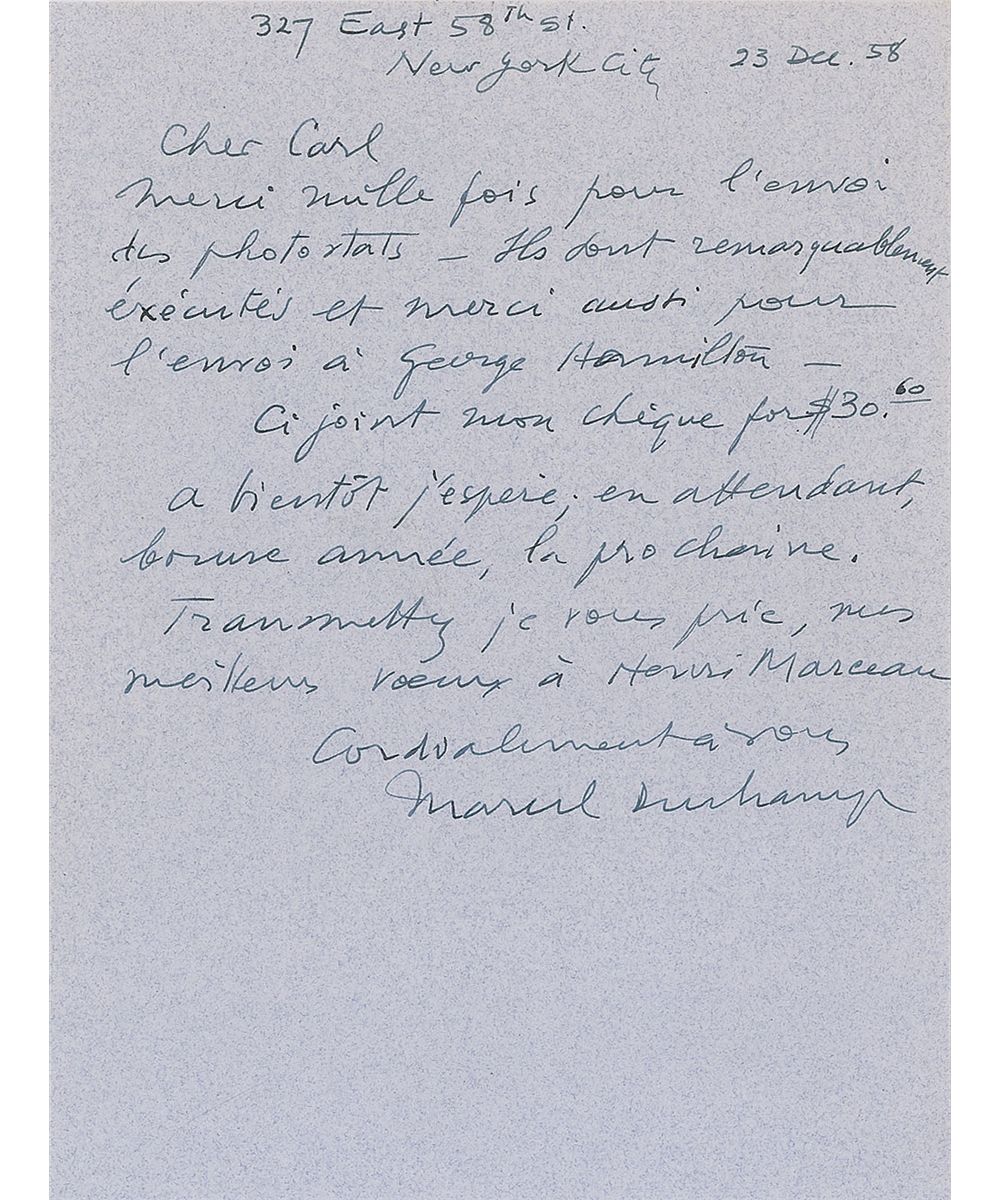 327 East 58th St.
New York City 23 Dec. 58
Cher Carl
Merci mille fois pour l'envoi
des photostats – Ils sont remarquablement
éxécutés et merci aussi pour
l'envoi à George Hamilton –
Ci joint mon chèque for $30.60
a bientôt j'espère; en attendant,
bonne année, la prochaine.
Transmettez je vous prie, mes
meilleurs vœux à Henri Marceau
Cordialement à vous
Marcel Duchamp